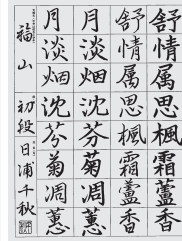 舒情属思楓霜蘆香
舒情属思楓霜蘆香
月淡烟沈芬菊凋蕙
月淡烟沈芬菊凋蕙
福山 初段 日浦千秋